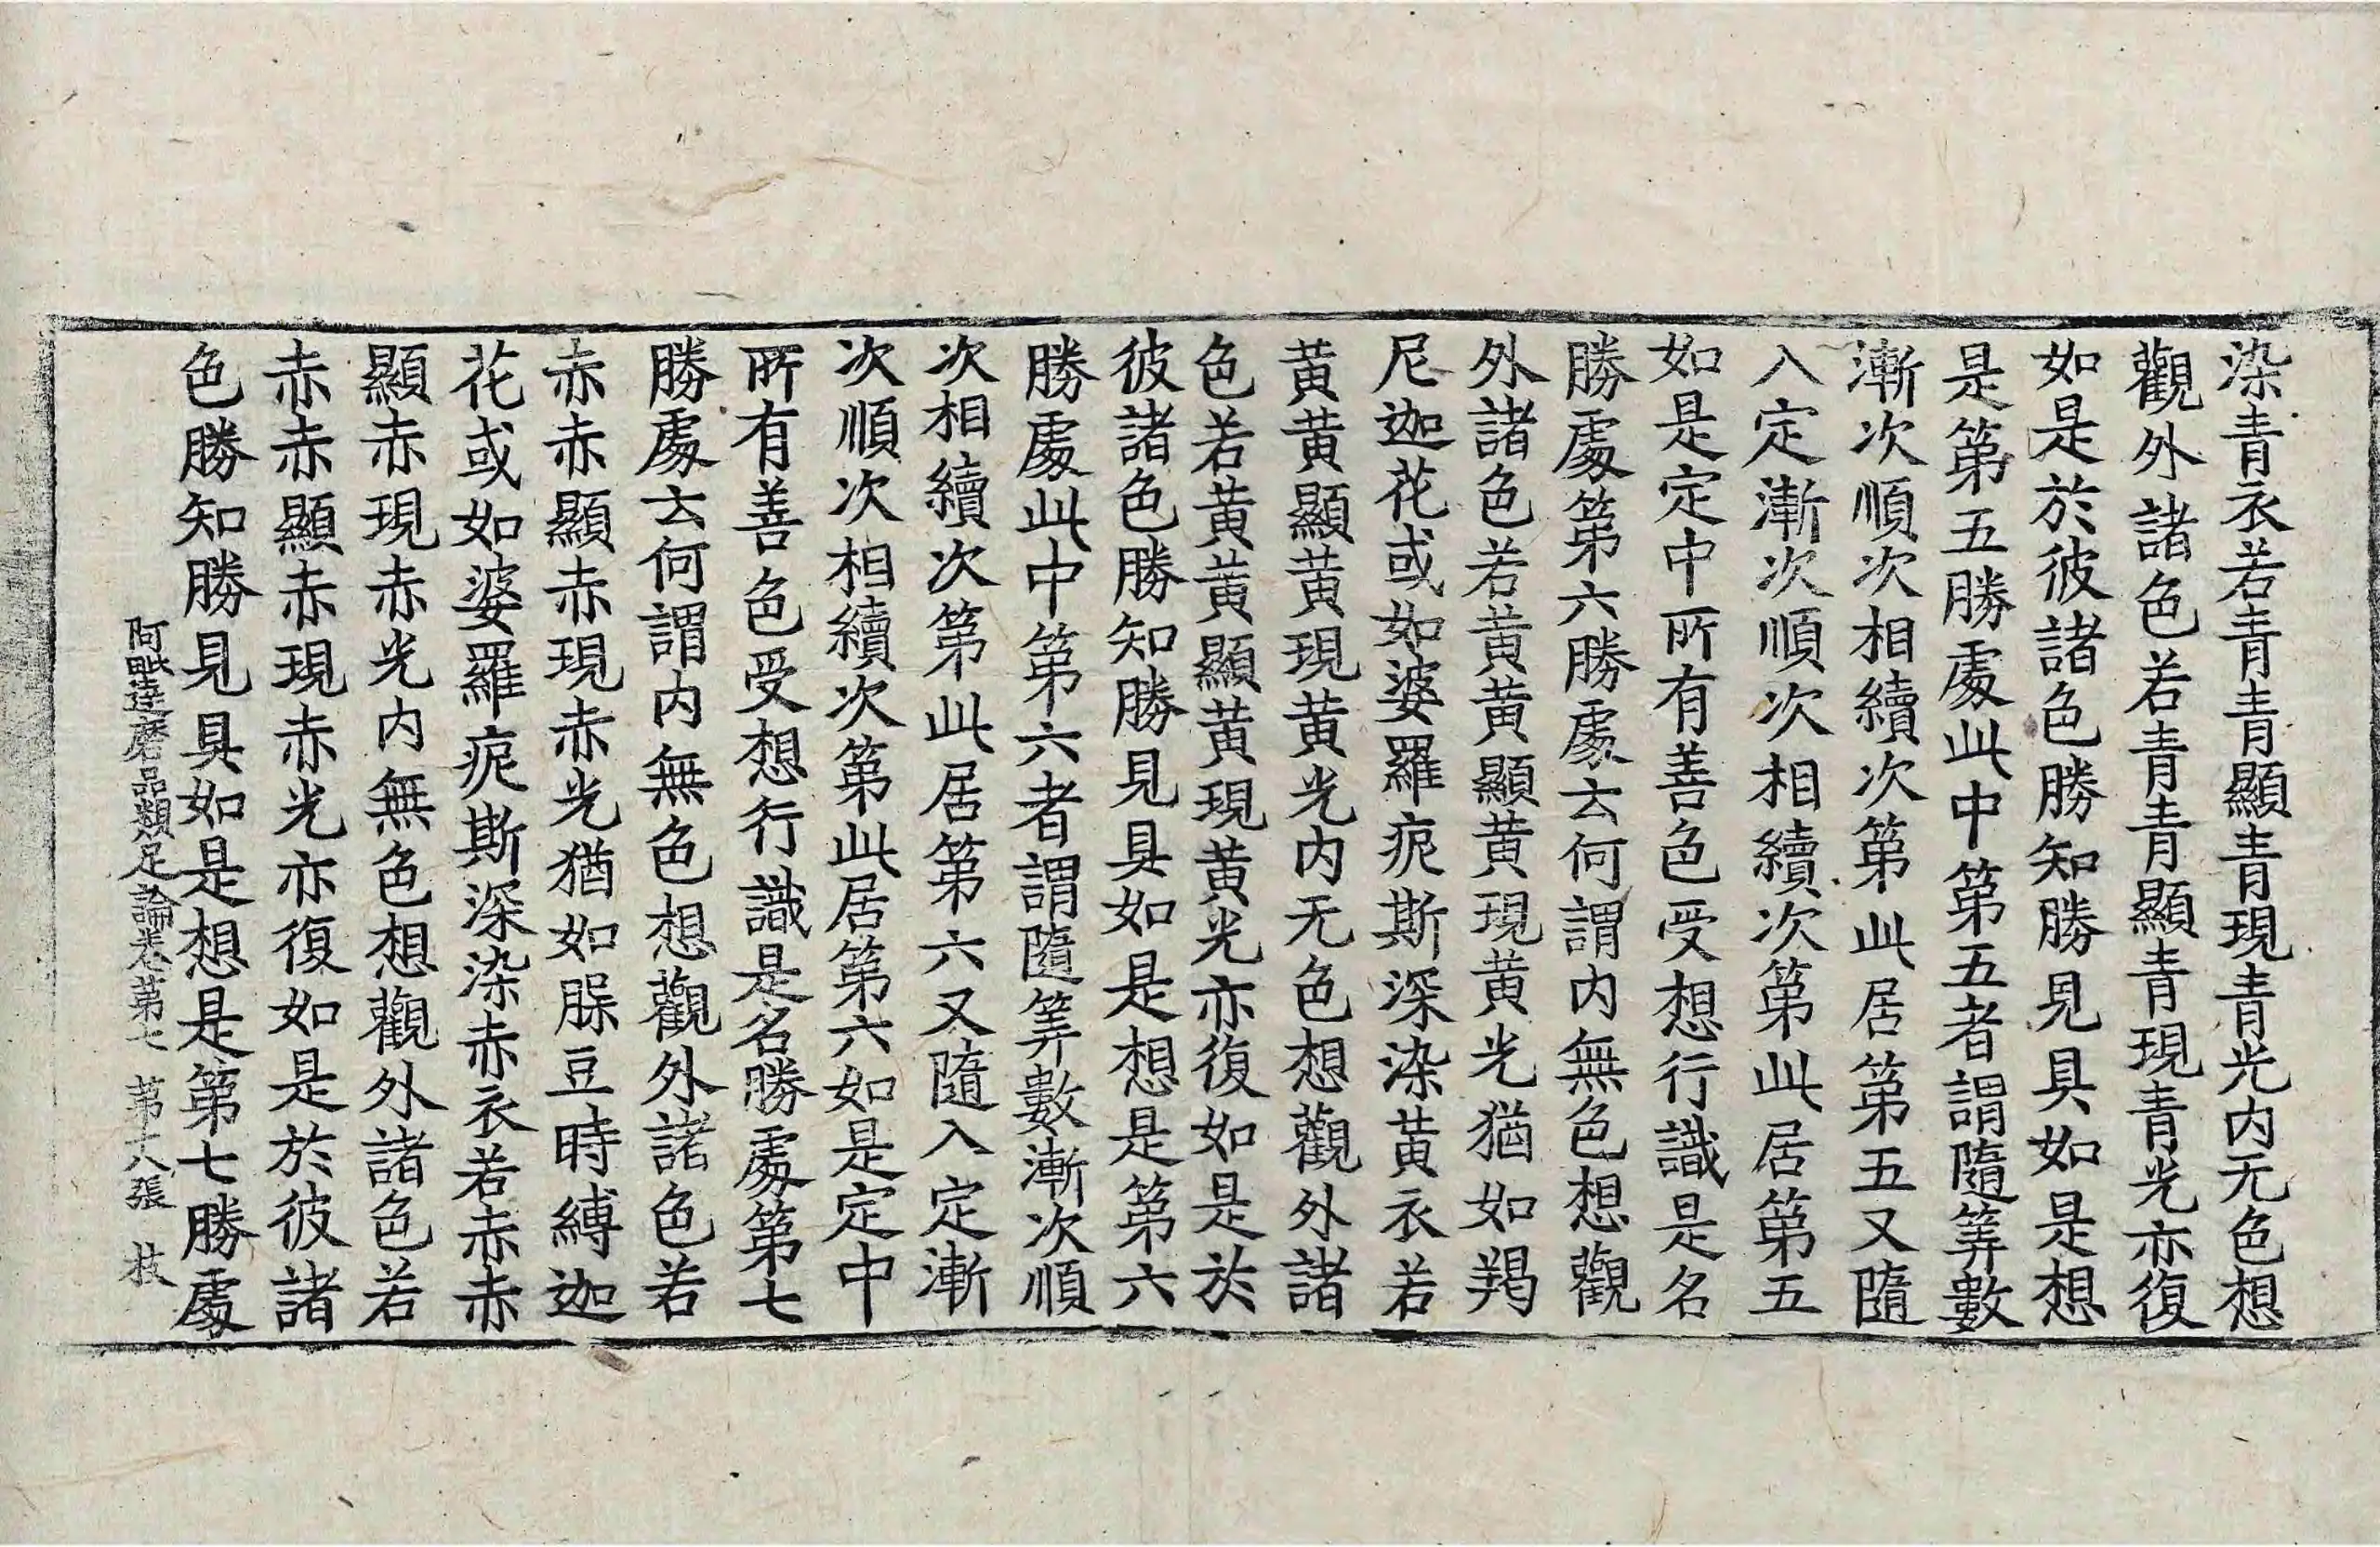 染青衣若青青顯青現青光内无色想
觀外諸色若青青顯青現青光亦復
如是於彼諸色勝知勝見具如是想
是第五勝處此中第五者謂隨筭數
漸次順次相續次第此居第五又隨
入定漸次順次相續次第此居第五
如是定中所有善色受想行識是名
勝處第六勝處云何謂内無色想觀
外諸色若黄黄顯黄現黄光猶如羯
尼迦花或如婆羅痆斯深染黄衣若
黄黄顯黄現黄光内无色想觀外諸
色若黄黄顯黄現黄光亦復如是於
彼諸色勝知勝見具如是想是第六
勝處此中第六者謂隨筭數漸次順
次相續次第此居第六又隨入定漸
次順次相續次第此居第六如是定中
所有善色受想行識是名勝處第七
勝處云何謂内無色想觀外諸色若
赤赤顯赤現赤光猶如脲豆時縛迦
花或如婆羅痆斯深染赤衣若赤赤
顯赤現赤光内無色想觀外諸色若
赤赤顯赤現赤光亦復如是於彼諸
色勝知勝見具如是想是第七勝處
阿毗達磨品類足論卷第七 第十八張 枝